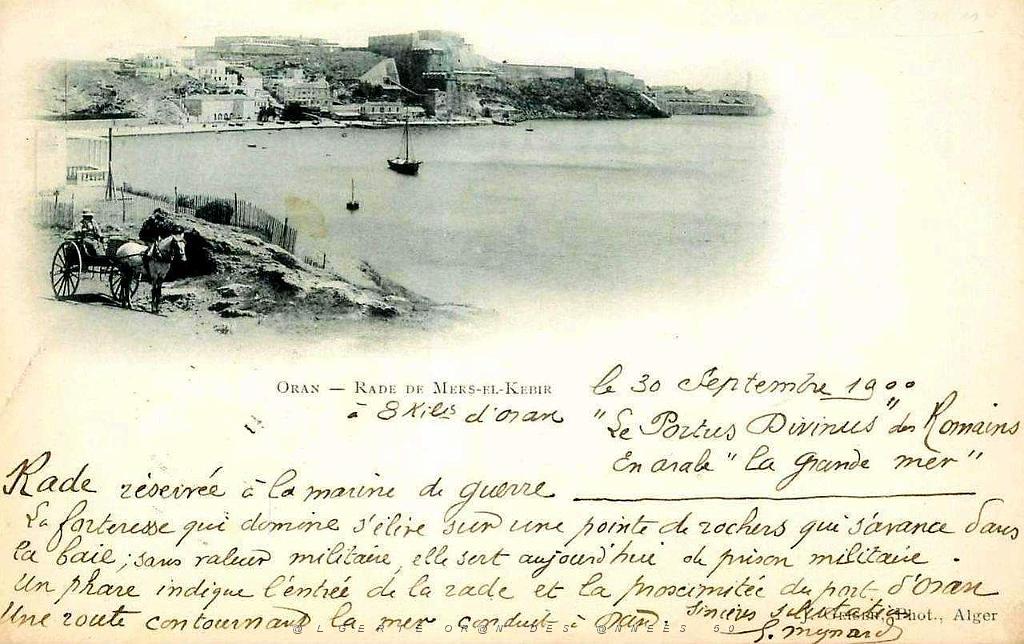 ORAN — RADE DE MERS-EL-KEBIR
à 8 Kil.es d'oran
le 30 Septembre 1900
"Le Portus Divinus" des Romains
En arabe "la grande mer"
Rade réservée à la marine de guerre
La forteresse qui domine s'élève sur une pointe de rochers qui s'avance dans
la baie; sans valeur militaire, elle sert aujourd'hui de prison militaire.
Un phare indique l'entrée de la rade et la proximité du port d'Oran
Une route contournant la mer conduit à Oran. sincères salutations
Phot., Alger
@LGERIE OR@N DES @NNEES 50